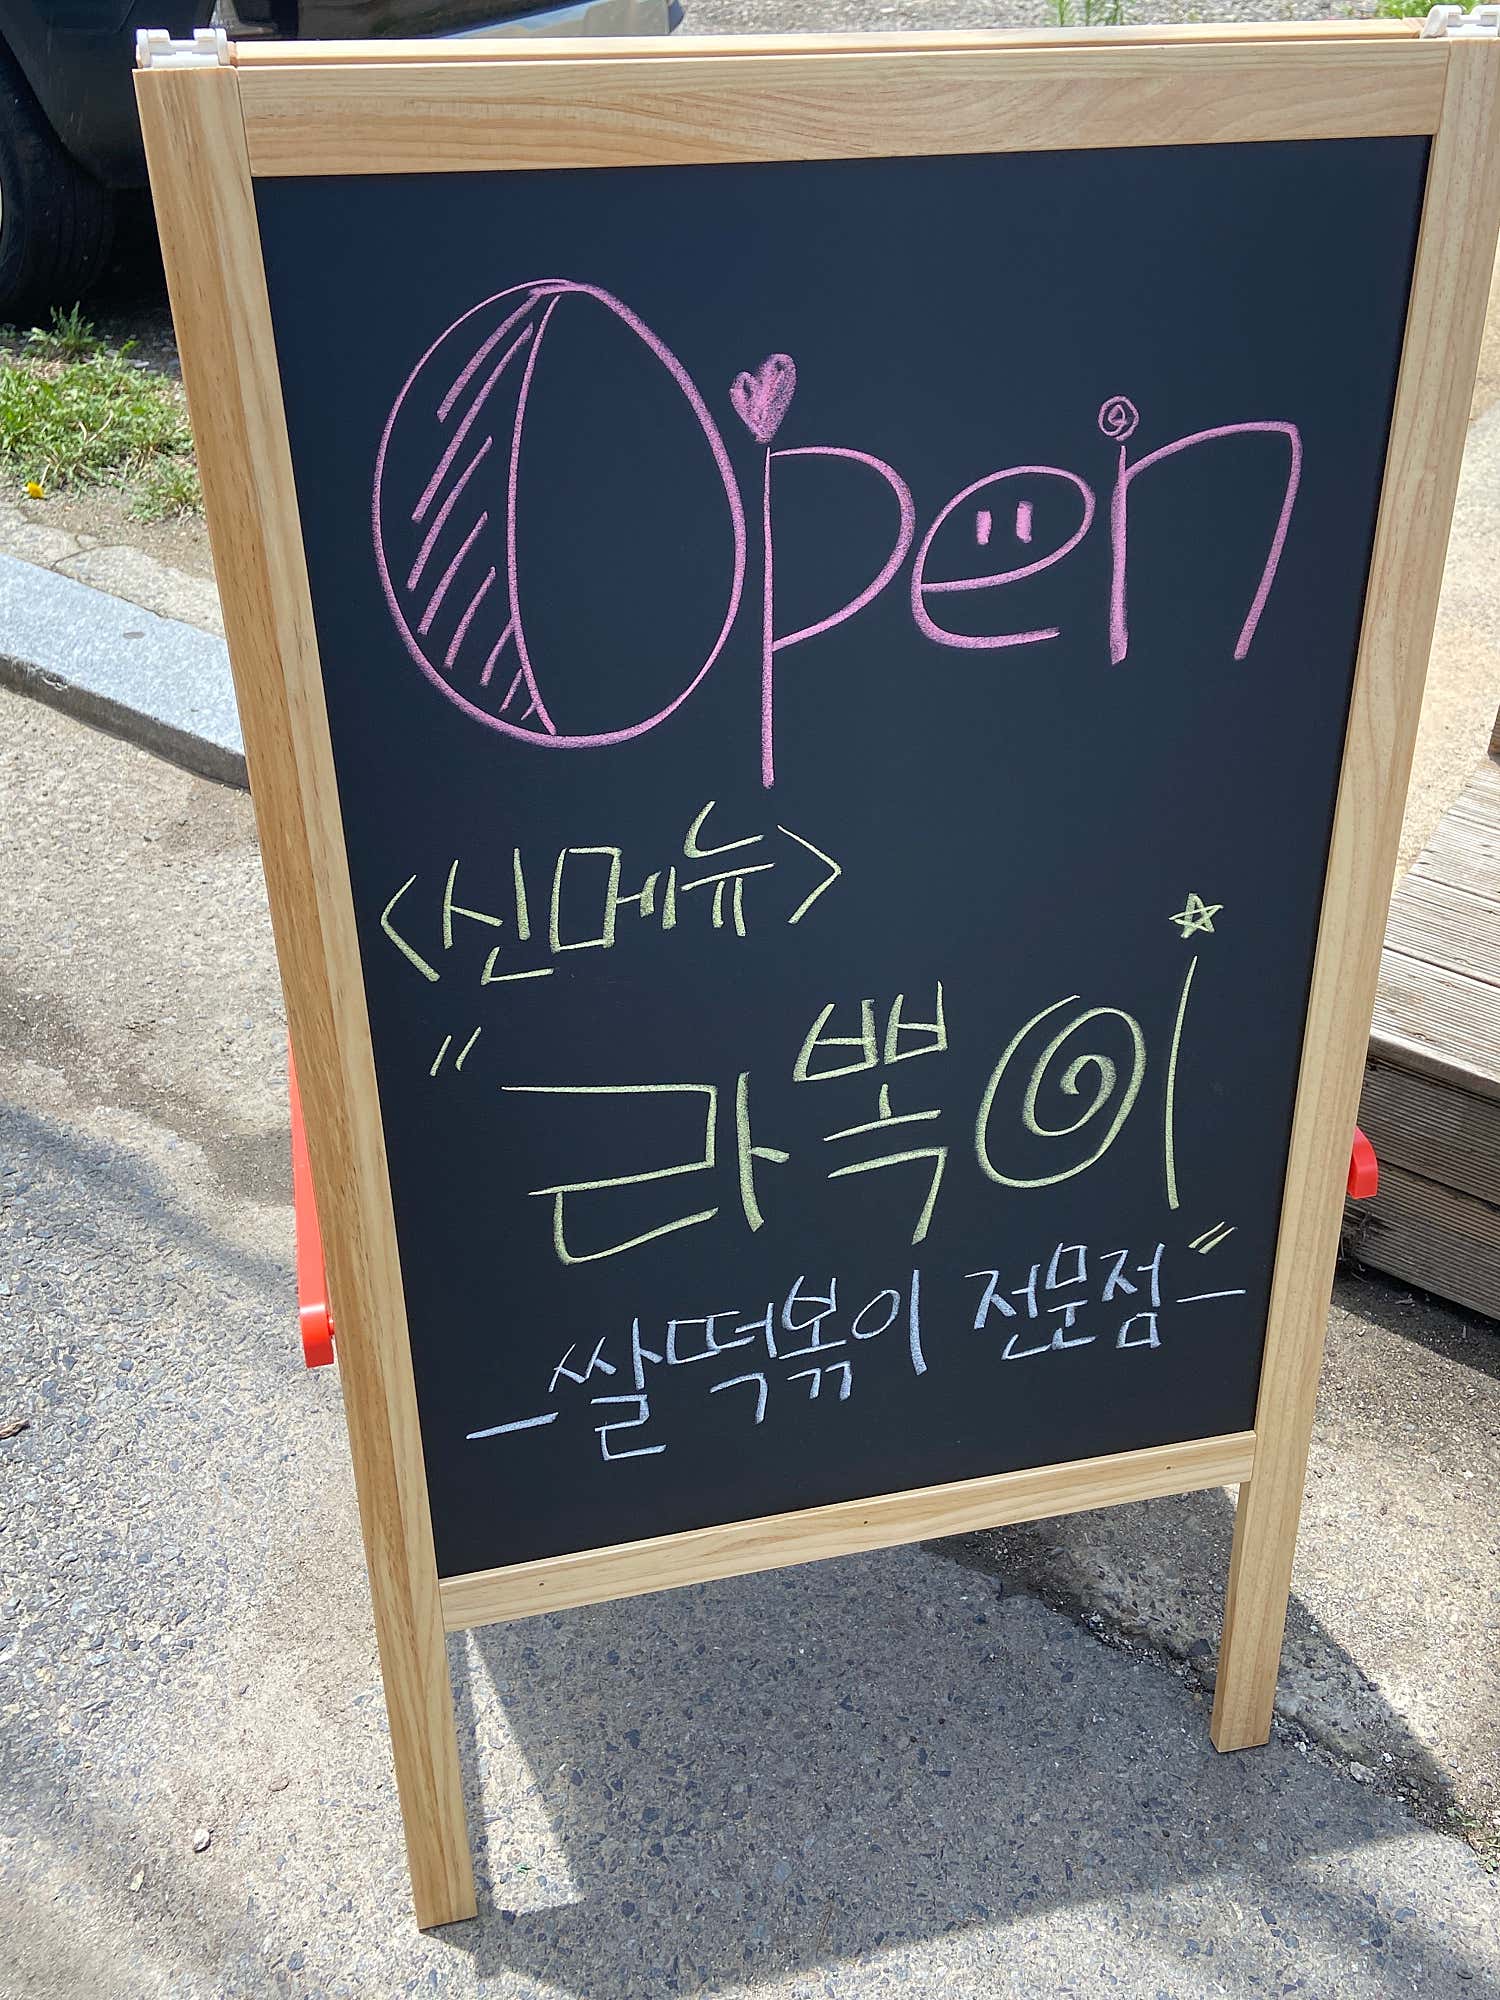 Open
<신메뉴>
"라뽁이"
-쌀떡볶이 전문점-